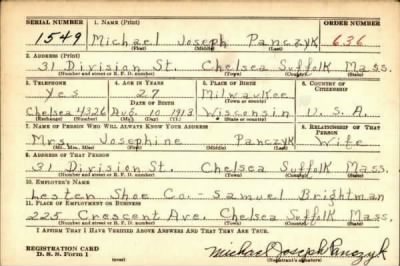 SERIAL NUMBER 1. NAME (Print) ORDER NUMBER
1549 Michael Joseph Panczyk 636
(First) (Middle) (Last)
2. ADDRESS (Print)
31 Division St. Chelsea Suffolk Mass.
(Number and street or R. F. D. number) (Town) (County) (State)
3. TELEPHONE 4. AGE IN YEARS 5. PLACE OF BIRTH 6. COUNTRY OF CITIZENSHIP
Yes 27 Milwaukee
DATE OF BIRTH (Town or county)
Chelsea 4326 Aug. 10 1913 Wisconsin U.S.A.
(Exchange) (Number) (Mo.) (Day) (Yr.) (State or country)
7. NAME OF PERSON WHO WILL ALWAYS KNOW YOUR ADDRESS 8. RELATIONSHIP OF THAT PERSON
Mrs. Josephine Panczyk Wife
(Mr., Mrs., Miss) (First) (Middle) (Last)
9. ADDRESS OF THAT PERSON
31 Division St. Chelsea Suffolk Mass.
(Number and street or R. F. D. number) (Town) (County) (State)
10. EMPLOYER'S NAME
Lester Shoe Co. - Samuel Brightman
11. PLACE OF EMPLOYMENT OR BUSINESS
225 Crescent Ave. Chelsea Suffolk Mass.
(Number and street or R. F. D. number) (Town) (County) (State)
I AFFIRM THAT I HAVE VERIFIED ABOVE ANSWERS AND THAT THEY ARE TRUE.
REGISTRATION CARD
D. S. S. Form 1 Michael Joseph Panczyk
(Registrant's signature)